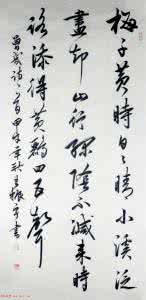 梅子黄時日〻晴小溪泛
盡却山行綠陰不減来時
路添得黄鸝四五聲
曾幾詩一首甲午年秋振書